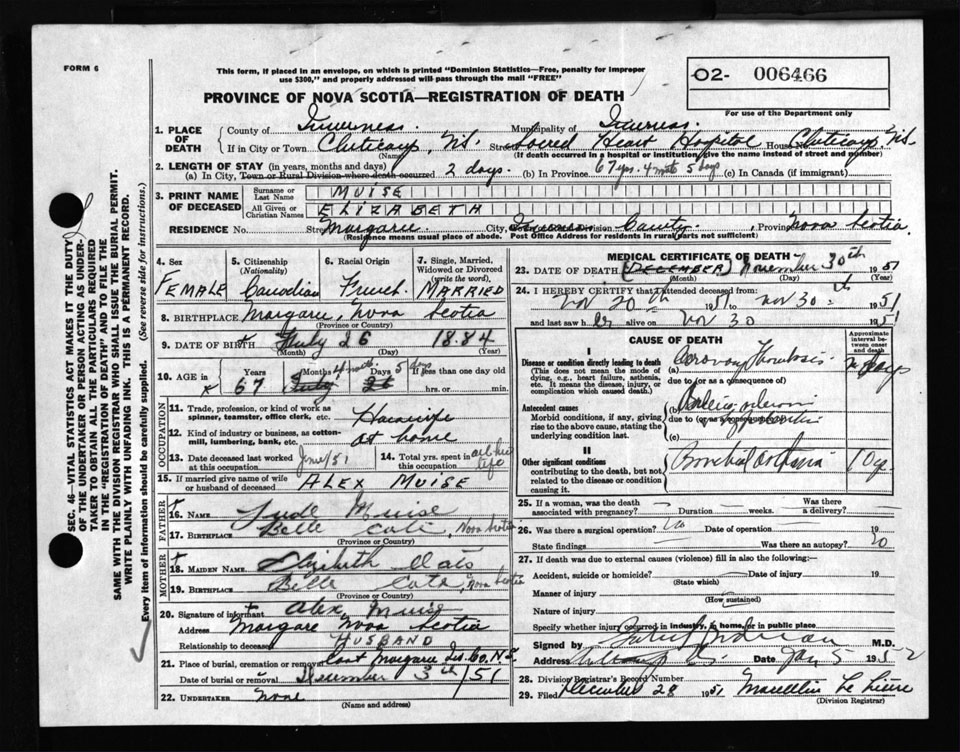 FORM 6
This form, if placed in an envelope, on which is printed "Dominion Statistics—Free, penalty for improper
use $300," and properly addressed will pass through the mail "FREE"
02- 006466
For use of the Department only
PROVINCE OF NOVA SCOTIA—REGISTRATION OF DEATH
1. PLACE OF DEATH
County of Inverness Municipality of Inverness
If in City or Town Cheticamp, N.S. Street Sacred Heart Hospital House No. Cheticamp N.S.
(Name) (If death occurred in a hospital or institution, give the name instead of street and number)
2. LENGTH OF STAY (in years, months and days)
(a) In City, Town or Rural Division where death occurred 2 days. (b) In Province 67 yrs. 4 mths 5 days (c) In Canada (if immigrant)
3. PRINT NAME OF DECEASED
Surname or Last Name MUISE
All Given or Christian Names ELIZABETH
RESIDENCE No. Street Margaree City, Division County, Province Nova Scotia.
(Residence means usual place of abode. Post Office Address for residents in rural parts not sufficient)
4. Sex FEMALE
5. Citizenship (Nationality) Canadian
6. Racial Origin French
7. Single, Married, Widowed or Divorced (write the word) MARRIED
8. BIRTHPLACE Margaree, Nova Scotia
(Province or Country)
9. DATE OF BIRTH July 26 1884
(Month) (Day) (Year)
10. AGE in Years 67 Months 4 Days 5 If less than one day old hrs. or min.
OCCUPATION
11. Trade, profession, or kind of work as spinner, teamster, office clerk, etc. Housewife
12. Kind of industry or business, as cotton-mill, lumbering, bank, etc. at home
13. Date deceased last worked at this occupation June/51
14. Total yrs. spent in this occupation all her life
15. If married give name of wife or husband of deceased ALEX MUISE
FATHER
16. NAME Jude Muise
17. BIRTHPLACE Belle Cote, Nova Scotia
(Province or Country)
MOTHER
18. MAIDEN NAME Elizabeth
19. BIRTHPLACE Belle Cote, Nova Scotia
(Province or Country)
20. Signature of informant Alex Muise
Address Margaree Nova Scotia
Relationship to deceased HUSBAND
21. Place of burial, cremation or removal East Margaree Inv. Co. N.S.
Date of burial or removal December 3th/51
22. UNDERTAKER None
(Name and address)
MEDICAL CERTIFICATE OF DEATH
23. DATE OF DEATH (DECEMBER) November 30th 1951
(Month) (Day) (Year)
24. I HEREBY CERTIFY that I attended deceased from:
Nov 20th 1951 to Nov 30th 1951
and last saw her alive on Nov 30 1951
CAUSE OF DEATH
Approximate interval between onset and death
I
Disease or condition directly leading to death
(This does not mean the mode of dying, e.g., heart failure, asthenia, etc. It means the disease, injury, or complication which caused death.)
(a) Coronary Thrombosis days
due to (or as a consequence of)
Antecedent causes
Morbid conditions, if any, giving rise to the above cause, stating the underlying condition last.
(b)
due to (or as a consequence of)
(c)
II
Other significant conditions
contributing to the death, but not related to the disease or condition causing it.
Bronchial Asthma 10
25. If a woman, was the death associated with pregnancy? — Duration — weeks. Was there a delivery? —
26. Was there a surgical operation? No Date of operation 19
State findings Was there an autopsy? No
27. If death was due to external causes (violence) fill in also the following:
Accident, suicide or homicide? Date of injury 19
(State which)
Manner of injury
(How sustained)
Nature of injury
Specify whether injury occurred in industry, in home, or in public place
Signed by M.D.
Address Date Jan 5 1952
28. Division Registrar's Record Number
29. Filed December 28 1951 Marcellin Le Lievre
(Division Registrar)
SEC. 46—VITAL STATISTICS ACT MAKES IT THE DUTY
OF THE UNDERTAKER OR PERSON ACTING AS UNDER-
TAKER TO OBTAIN ALL THE PARTICULARS REQUIRED
IN THE "REGISTRATION OF DEATH" AND TO FILE THE
SAME WITH THE DIVISION REGISTRAR WHO SHALL ISSUE THE BURIAL PERMIT.
WRITE PLAINLY WITH UNFADING INK. THIS IS A PERMANENT RECORD.
Every item of information should be carefully supplied. (See reverse side for instructions.)